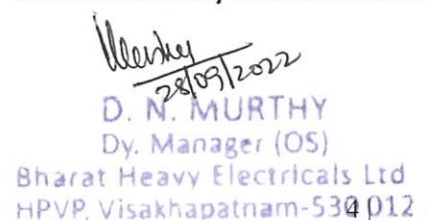 28/09/2022
D. N. MURTHY
Dy. Manager (OS)
Bharat Heavy Electricals Ltd
HPVP, Visakhapatnam-530 012